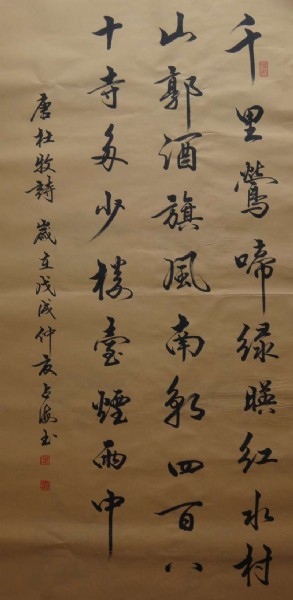 千里鶯啼緑暎紅水村
山郭酒旗風南朝四百八
十寺多少樓臺煙雨中
唐杜牧詩 歲在戊戌仲夏海书